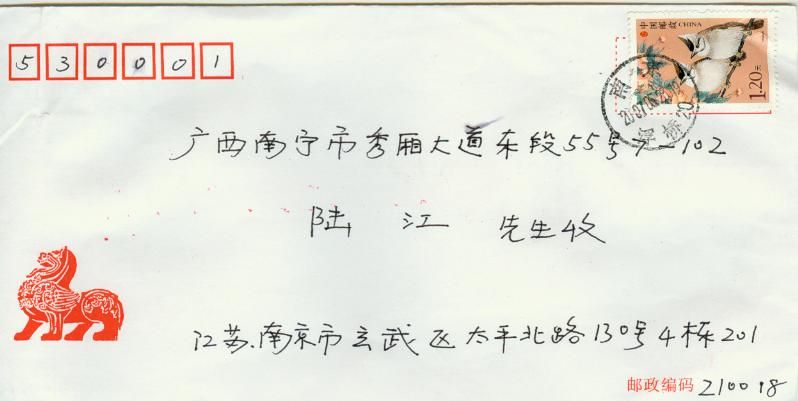 530001
中国邮政 CHINA
1.20元
南京
广西南宁市秀厢大道东段55号7-102
陆 江 先生收
江苏.南京市玄武区太平北路130号4栋201
邮政编码 210018